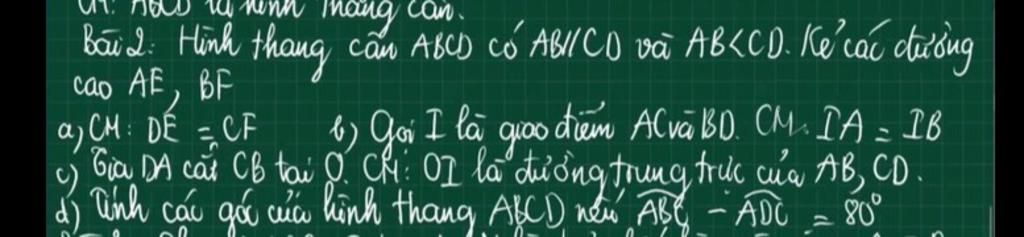 CM: ABCD là hình thang cân.
Bài 2: Hình thang cân ABCD có AB//CD và AB<CD. Kẻ các đường
cao AE, BF
a) CM: DE = CF b) Gọi I là giao điểm AC và BD. CM: IA = IB
c) Tia DA cắt CB tại O. CM: OI là đường trung trực của AB, CD.
d) Tính các góc của hình thang ABCD nếu ABC - ADC = 80°